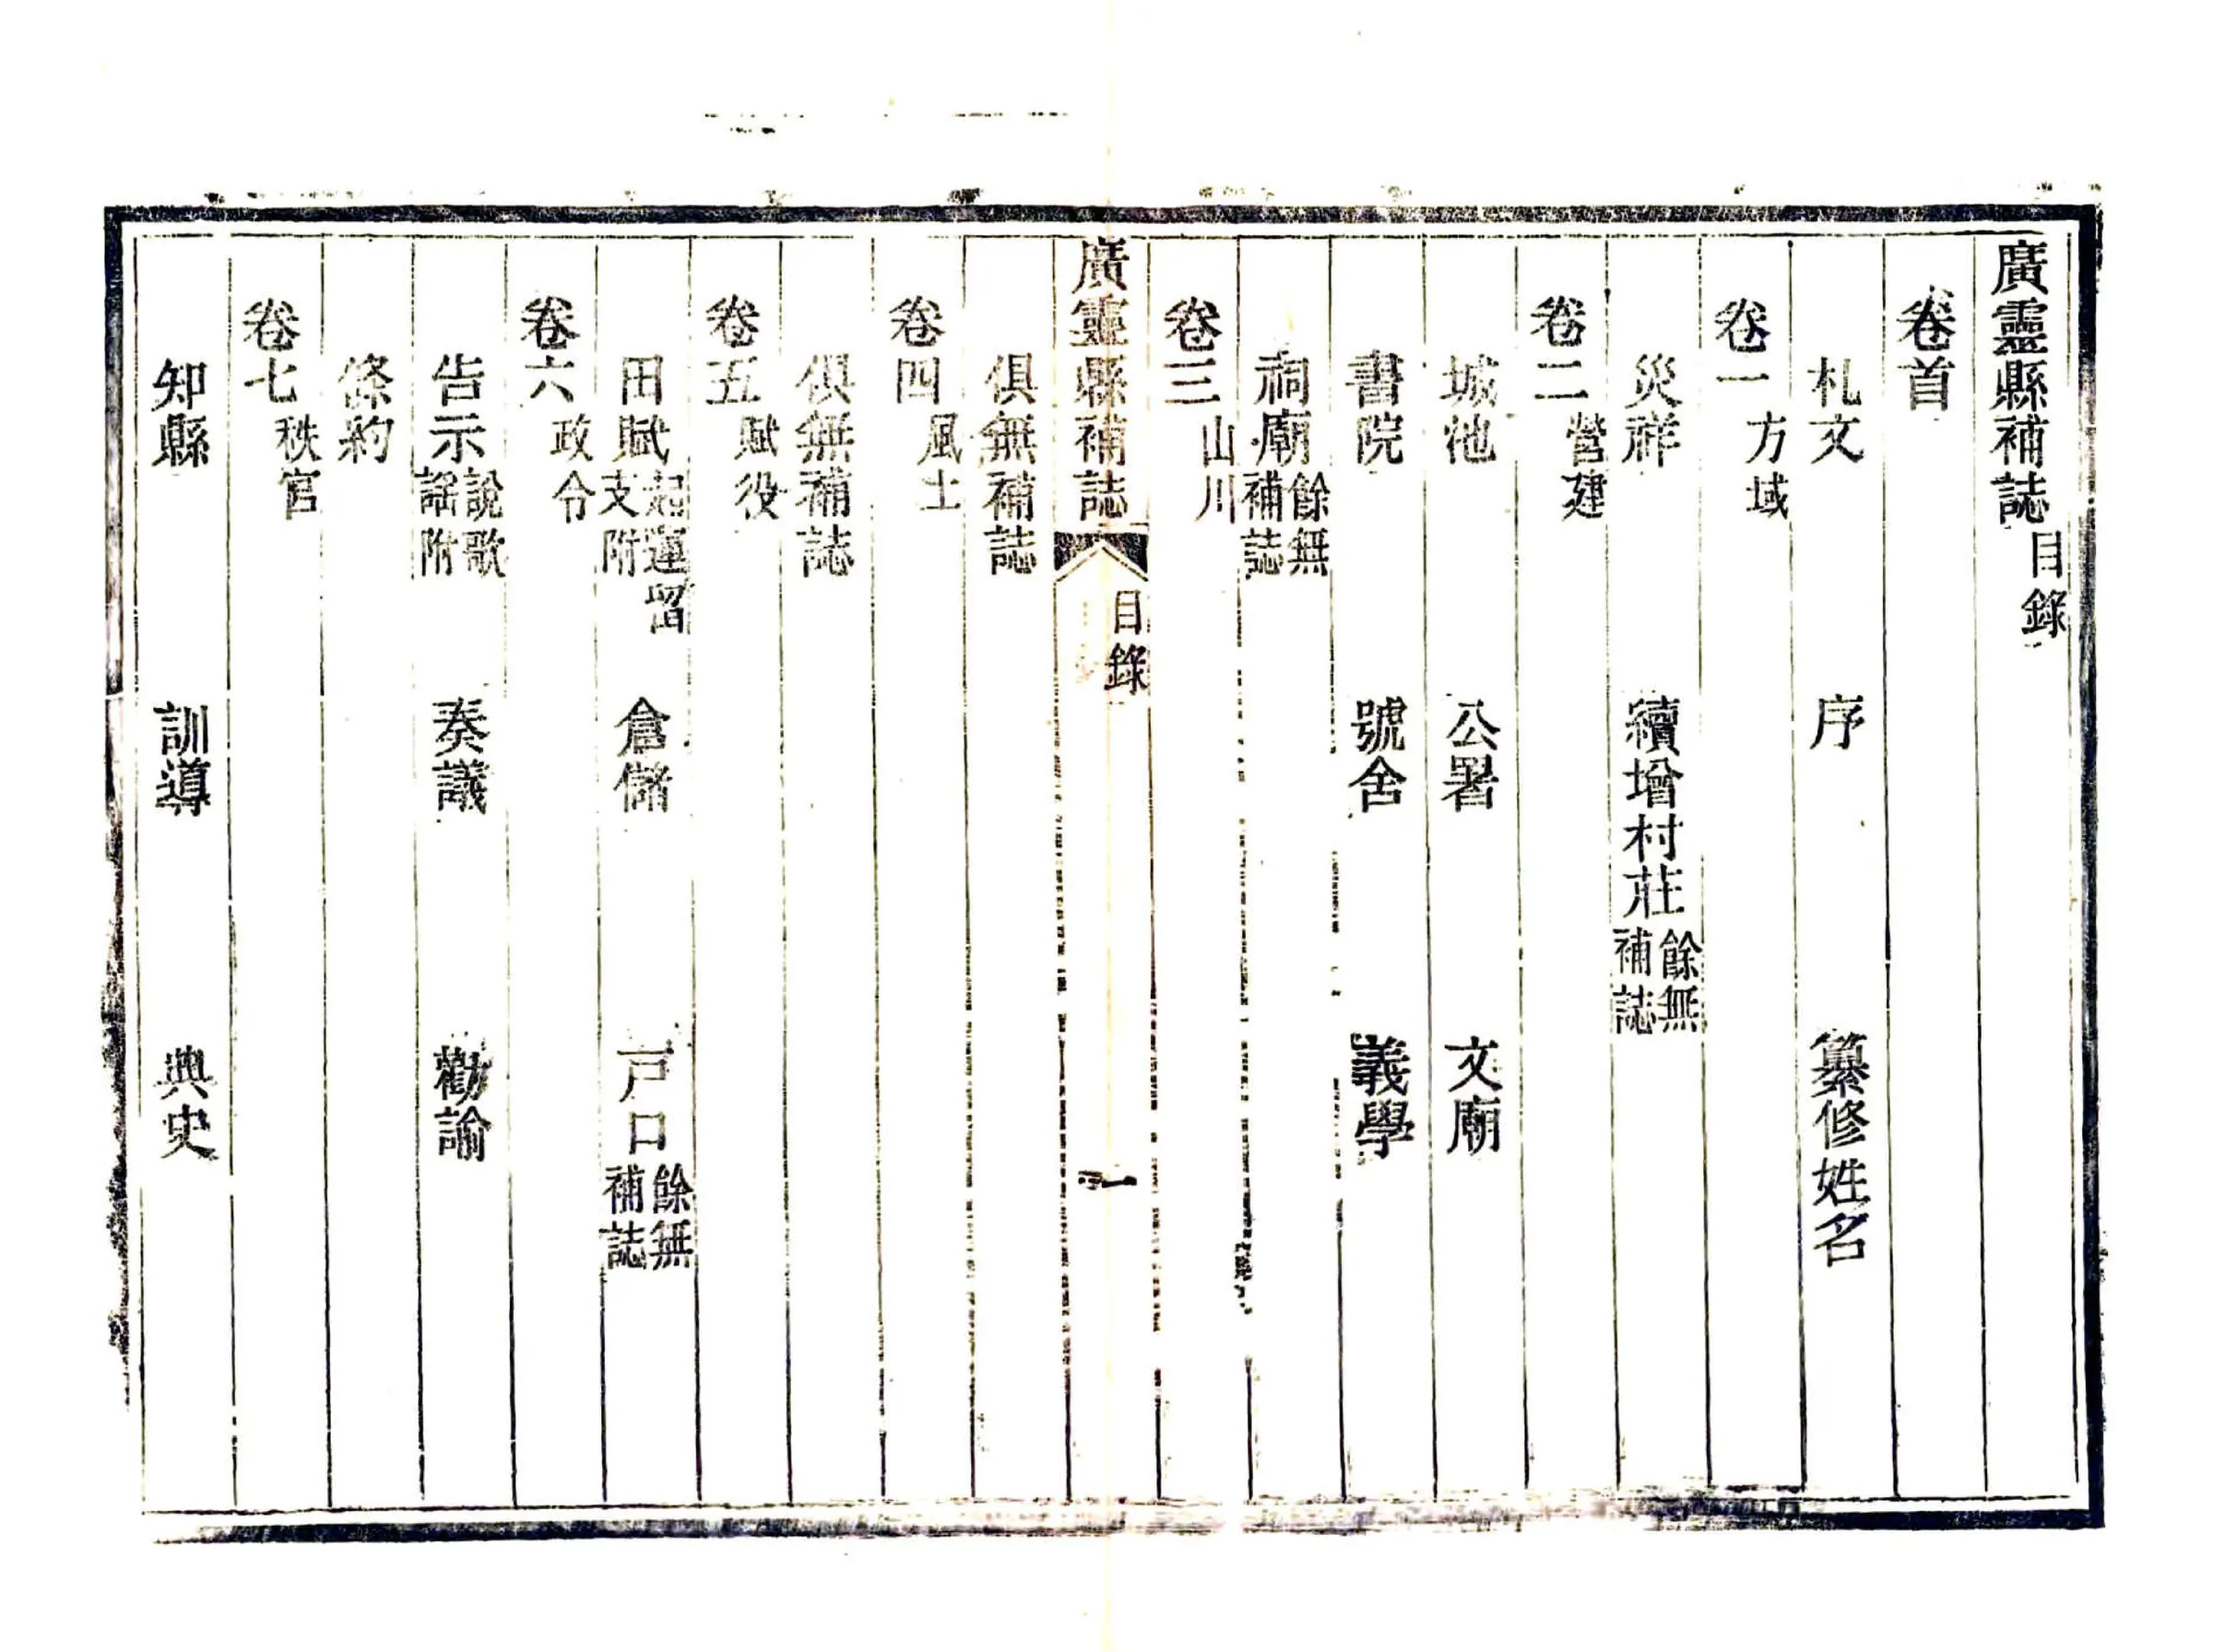 廣靈縣補誌目錄
卷首
札文 序 纂修姓名
卷一方域
災祥 續增村莊餘無補誌
卷二營建
城池 公署 文廟
書院 號舍 義學
祠廟餘無補誌
卷三山川
俱無補誌
廣靈縣補誌 目錄 一
卷四風土
俱無補誌
卷五賦役
田賦起運留支附 倉儲 戸口餘無補誌
卷六政令
告示說歌謠附 奏議 勸諭
條約
卷七秩官
知縣 訓導 典史